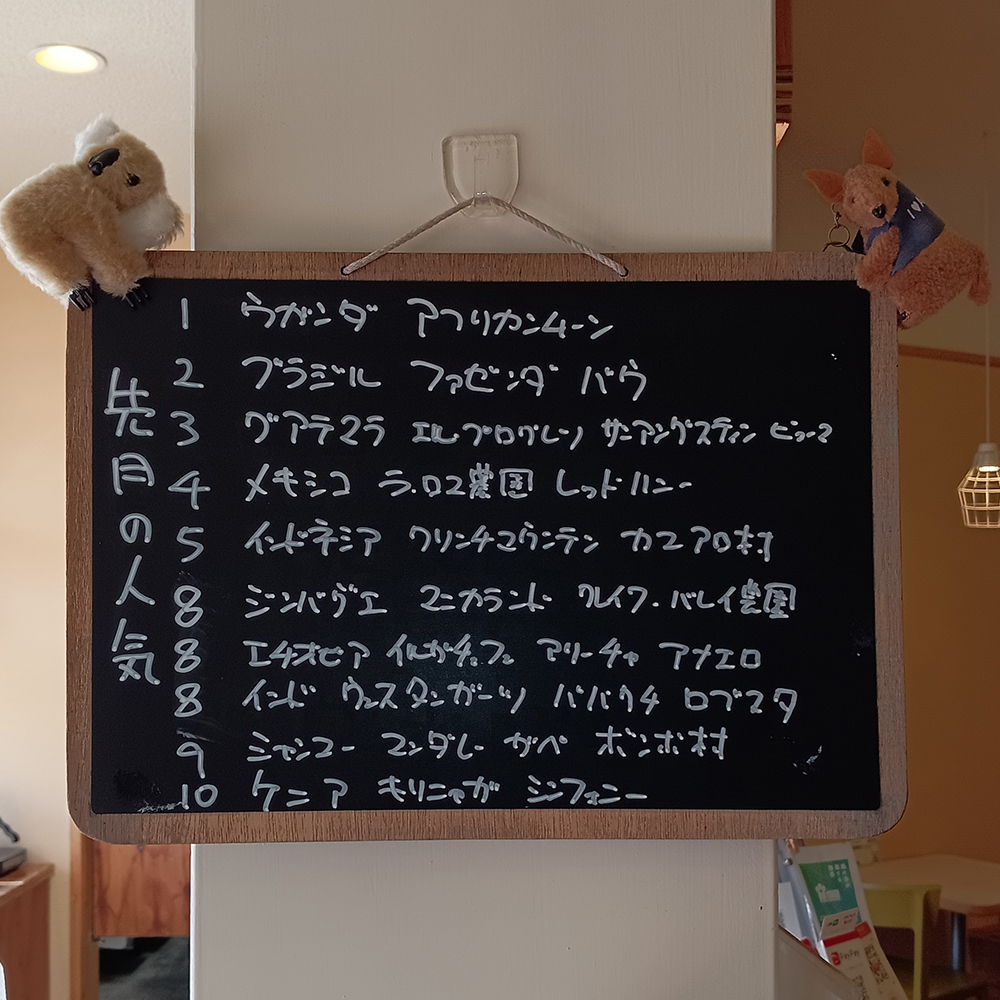 先月の人気
1 ウガンダ アフリカンムーン
2 ブラジル ファゼンダ バウ
3 グアテマラ エル・プログレソ サンアングスティン ピュース
4 メキシコ ラ・ロマ農園 レッドハニー
5 インドネシア クリンチマウンテン カユアロ村
8 ジンバグエ マニカランド クレイワ・バレイ農園
8 エチオピア イルガチェフェ アリーチャ アナエロ
8 インド ウェスタンガーツ ババウチ ロブスタ
9 ミャンマー マンダレー ガペ ボンボ村
10 ケニア キリニャガ シンフォニー